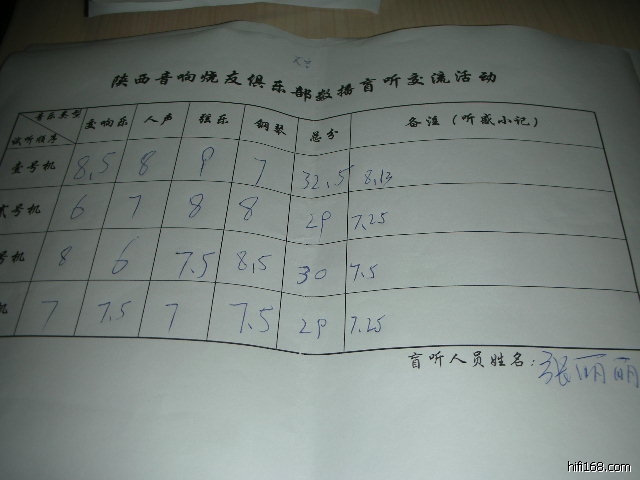 陕西音响烧友俱乐部数播盲听交流活动
音乐类型 交响乐 人声 弦乐 钢琴 总分 备注（听感小记）
试听顺序
壹号机 8.5 8 9 7 32.5 8.13
贰号机 6 7 8 8 29 7.25
号机 8 6 7.5 8.5 30 7.5
机 7 7.5 7 7.5 29 7.25
盲听人员姓名：张丽丽
hifi168.com